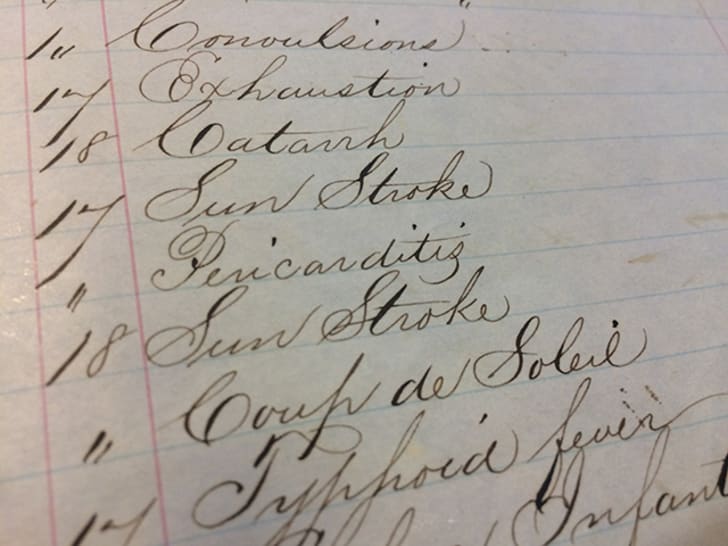 1" Convulsions
17 Exhaustion
18 Catarrh
17 Sun Stroke
" Pericarditis
18 Sun Stroke
" Coup de Soleil
17 Typhoid fever
Infant